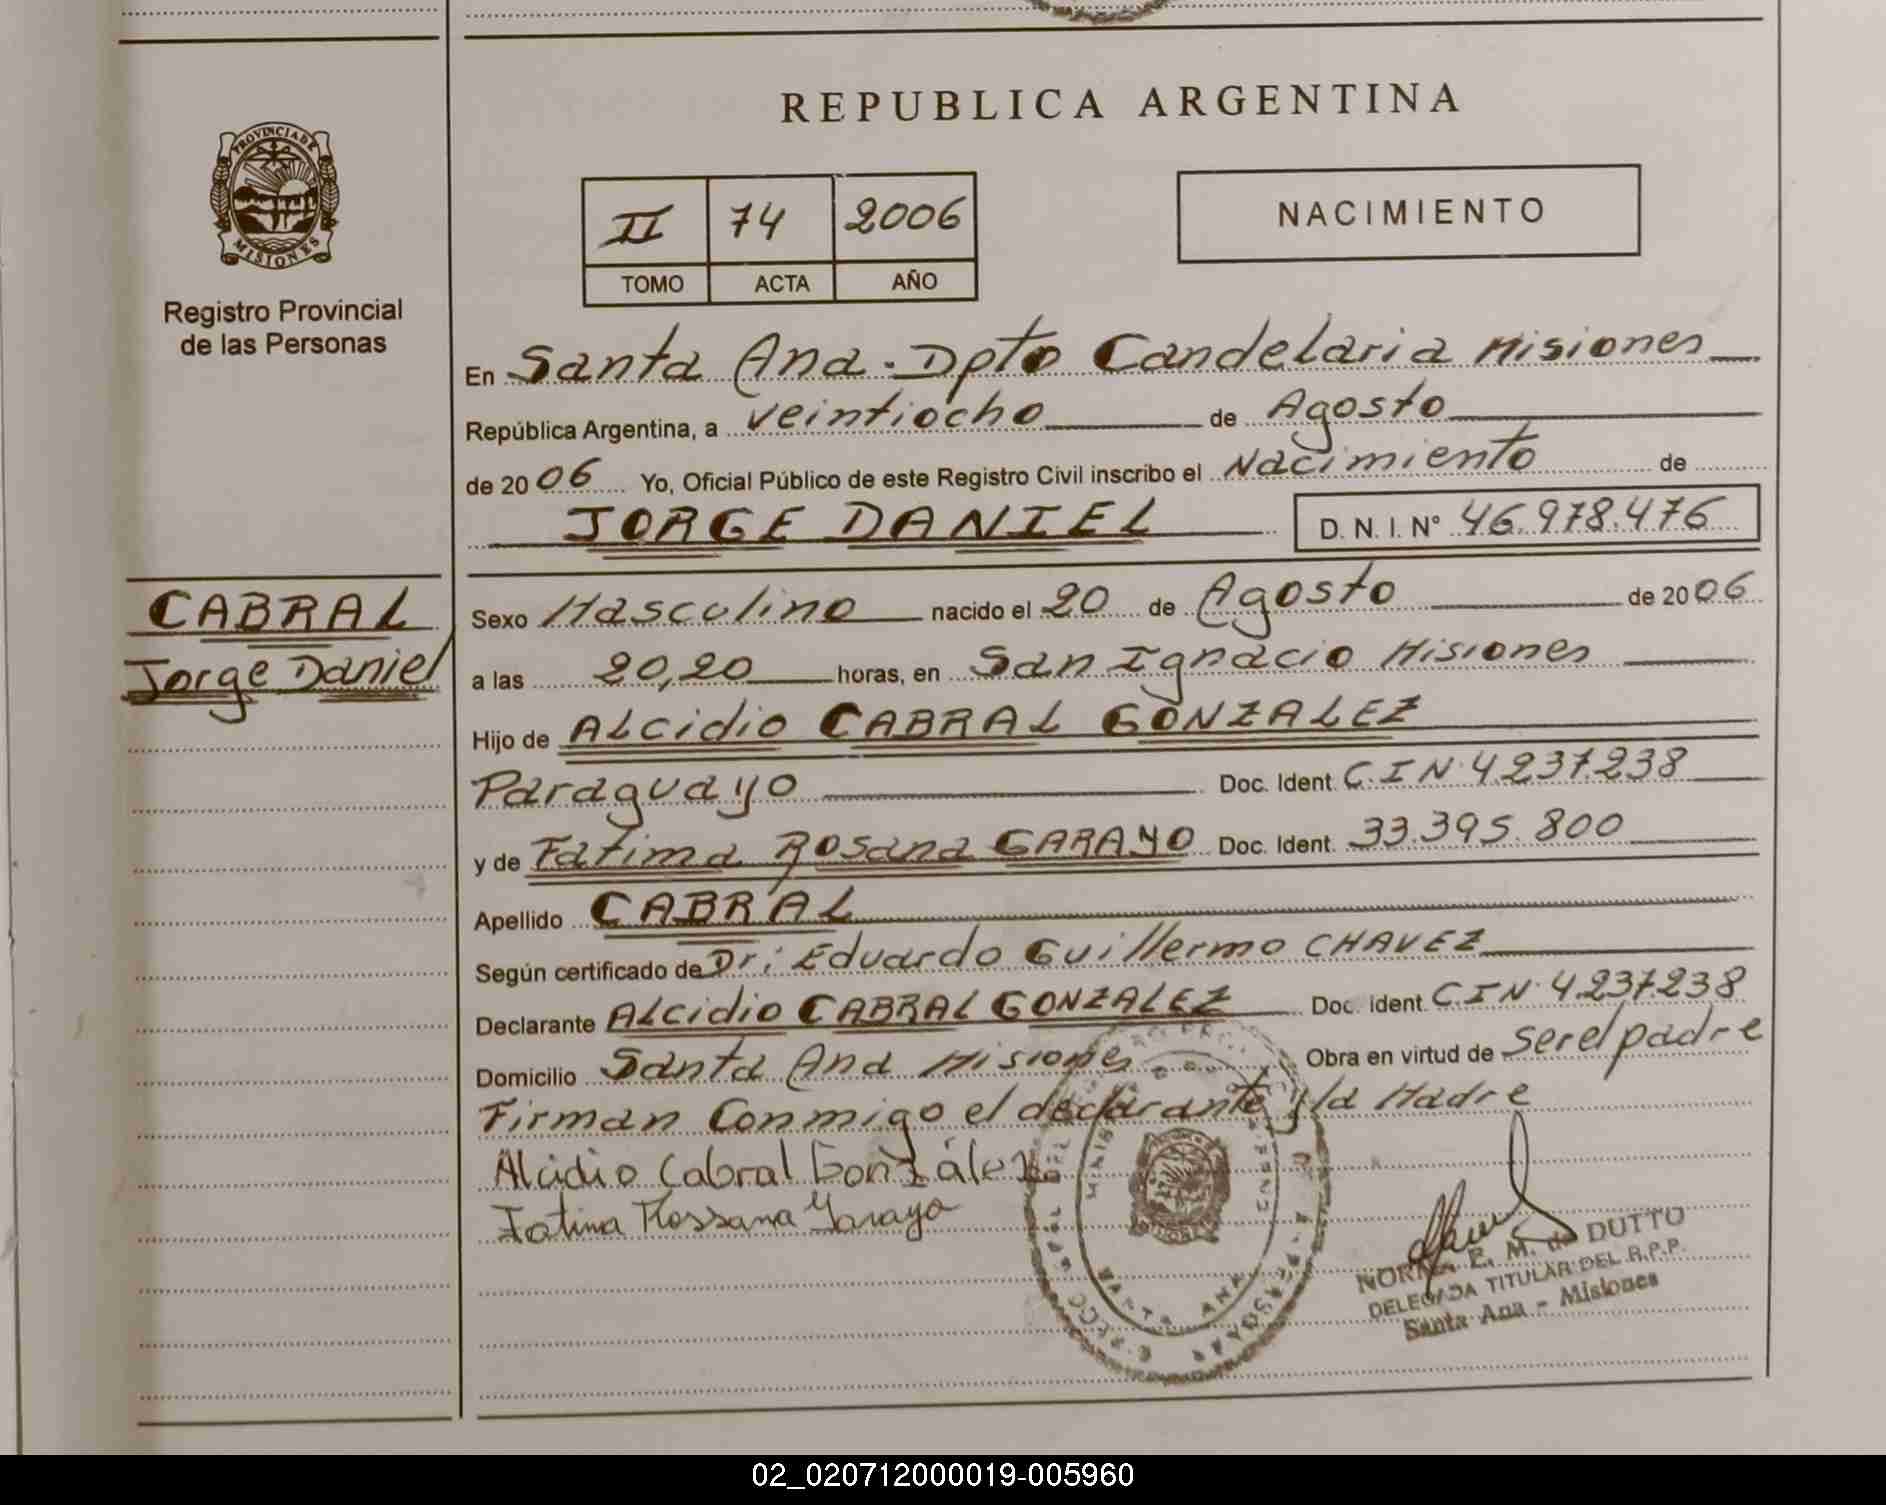 REPUBLICA ARGENTINA
PROVINCIA DE
MISIONES
Registro Provincial
de las Personas
II 74 2006
TOMO ACTA AÑO
NACIMIENTO
En Santa Ana - Dpto Candelaria Misiones
República Argentina, a veintiocho de Agosto
de 2006 Yo, Oficial Público de este Registro Civil inscribo el Nacimiento de
JORGE DANIEL D. N. I. N° 46.978.476
CABRAL
Jorge Daniel
Sexo Masculino nacido el 20 de Agosto de 2006
a las 20,20 horas, en San Ignacio Misiones
Hijo de Alcidio CABRAL GONZALEZ
Paraguayo Doc. Ident. C.I N° 4237238
y de Fatima Rosana GARAYO Doc. Ident. 33.395.800
Apellido CABRAL
Según certificado de Dr; Eduardo Guillermo CHAVEZ
Declarante Alcidio CABRAL GONZALEZ Doc. Ident. C.I N° 4237238
Domicilio Santa Ana Misiones Obra en virtud de ser el padre
Firman Conmigo el declarante y la Madre
Alcidio Cabral González
Fatima Rossana Garayo
SANTA ANA
NORMA E. M. de DUTTO
DELEGADA TITULAR DEL R.P.P.
Santa Ana - Misiones
02_020712000019-005960